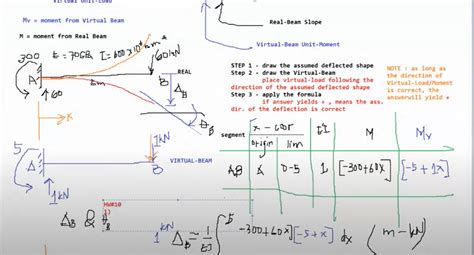 Virtual Unit-Load
Mv = moment from Virtual Beam
M = moment from Real Beam
Real-Beam Slope
Virtual-Beam Unit-Moment
300
E = 70GPa I = 600x10⁶ mm⁴
60kN
A
B
REAL
5m
60
Δ_B
θ_B
x
STEP 1 - draw the assumed deflected shape
Step 2 - draw the Virtual-Beam
place virtual-load following the
direction of the assumed deflected shape
Step 3 - apply the formula
if answer yields + , means the ass.
dir. of the deflection is correct
NOTE : as long as
the direction of
Virtual-Load/Moment
is correct, the
answer will yield +
1kN
5
A
B
VIRTUAL-BEAM
1kN
segment
x - coor
origin
lim
EI
M
Mv
AB
A
0-5
1
[-300+60x]
[-5+1x]
HW#10
1)
Δ_B & θ_B
1 kN Δ_B = 1/EI ∫ 5 -300+60x][-5+x] dx (m-kN)